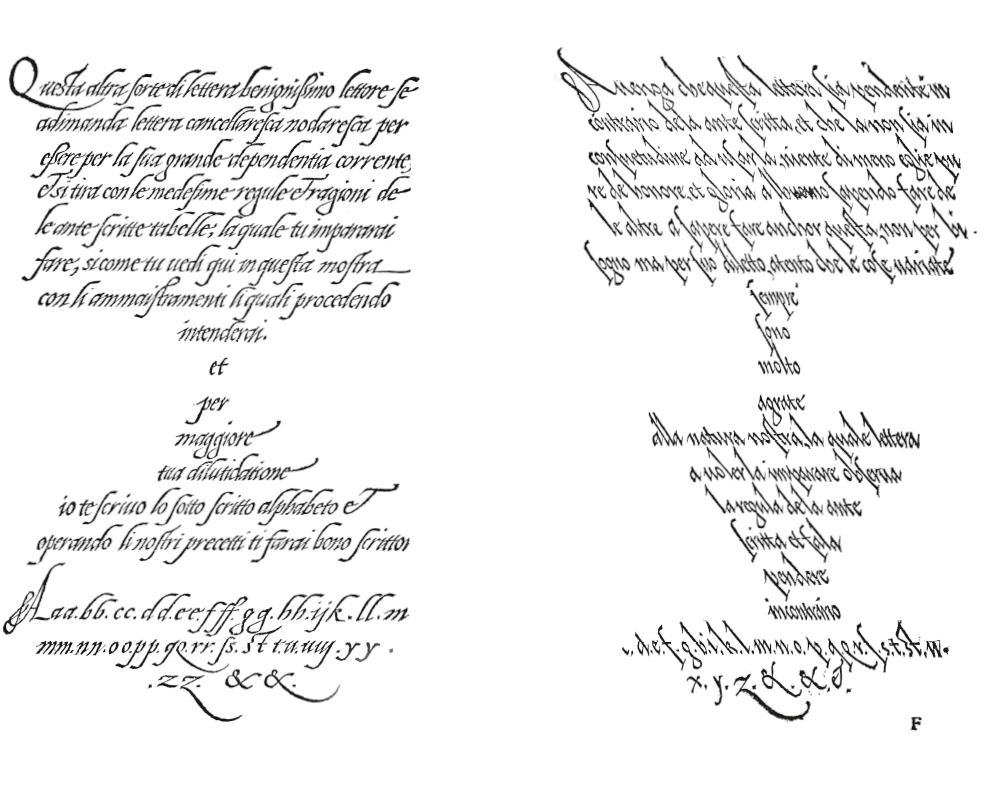 Questa altra sorte di lettera benignissimo lettore se
adimanda lettera cancellaresca nodaresca per
essere per la sua grande dependentia corrente,
et si tira con le medesime regule et ragioni de
le ante scritte tabelle; la quale tu impararai
fare, si come tu uedi qui in questa mostra
con li ammaistramenti li quali procedendo
intenderai.
et
per
maggiore
tua dilucidatione
io te scriuo lo sotto scritto alphabeto et
operando li nostri precetti ti farai bono scrittor
Aaa.bb.cc.dd.ee.fff.gg.hh.ijk.ll.m
mm.nn.oo.pp.qq.rr.ss.st t.u.uuy.yy.
.zz. & &.
Auenga che questa lettera sia pendente in
contrario de la ante scritta, et che la non sia in
consuetudine ad usarla, niente di meno
re de honore, et gloria a sapendo fare de
le altre a sapere fare anchor questa, non per bi-
sogno ma per suo diletto, atento che le cose uariate
sempre
sono
molto
agrate
alla natura nostra, la quale lettera
a uoler la imparare obserua
la regula de la ante
scritta et fala
pendere
incontrario
.d.e.f.g.h.i.k.l.m.n.o.p.q.r.s.t.st.
x.y.z.&.&.
F